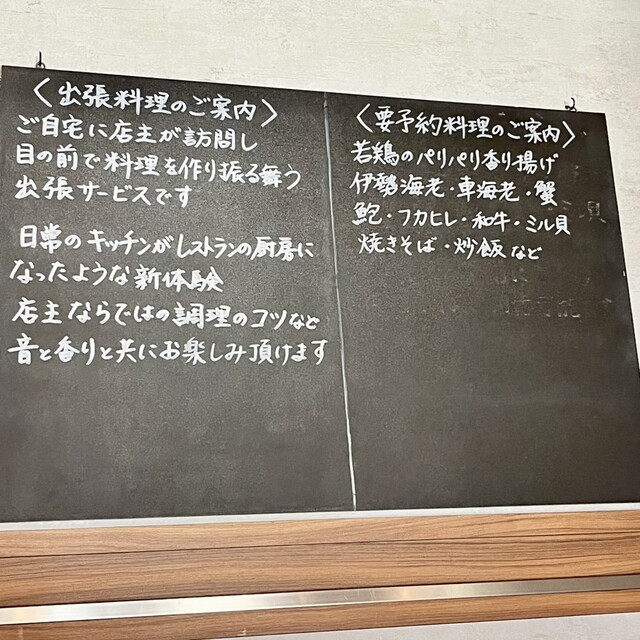 〈出張料理のご案内〉
ご自宅に店主が訪問し
目の前で料理を作り振る舞う
出張サービスです
日常のキッチンがレストランの厨房に
なったような新体験
店主ならではの調理のコツなど
音と香りと共にお楽しみ頂けます
〈要予約料理のご案内〉
若鶏のパリパリ香り揚げ
伊勢海老・車海老・蟹
鮑・フカヒレ・和牛・ミル貝
焼きそば・炒飯など